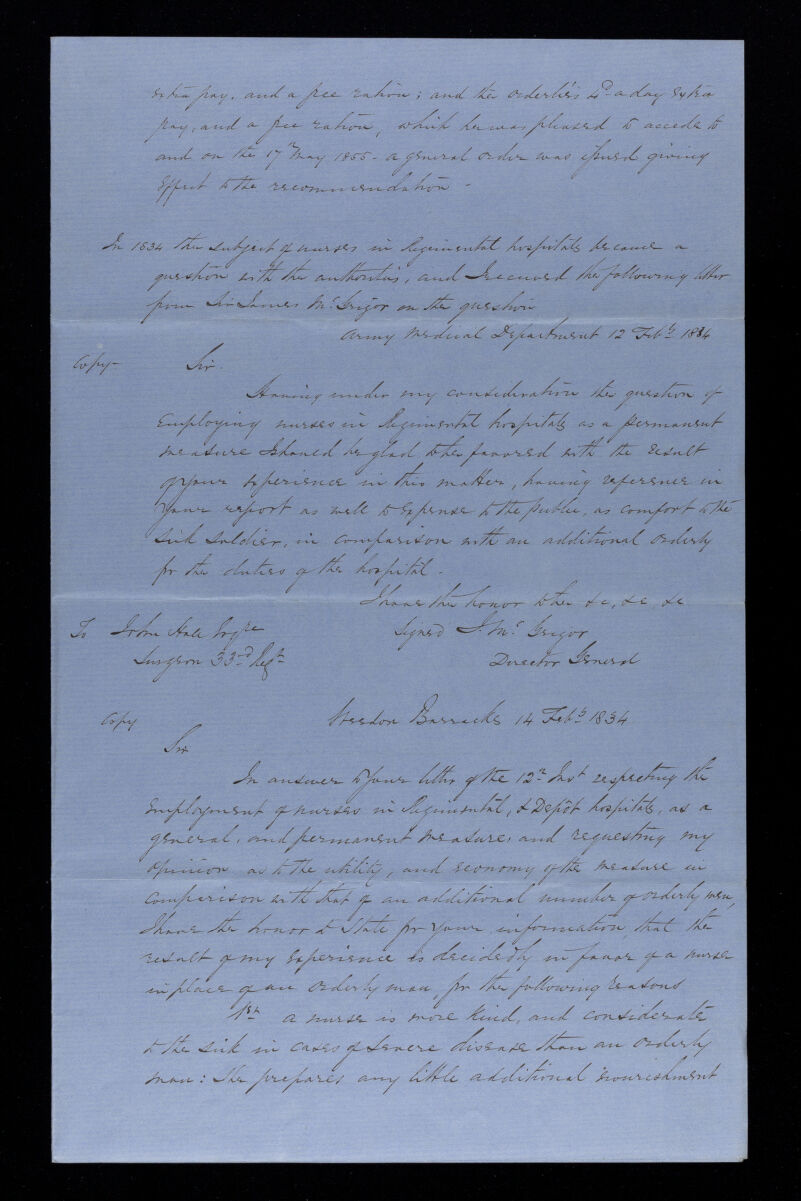 extra pay, and a free ration; and the orderlies 4d. a day extra
pay, and a free ration, which he was pleased to accede to
and on the 17th May 1855 - a general order was issued giving
effect to the recommendation -
In 1834 the subject of nurses in Regimental hospitals became a
question with the authorities, and I received the following letter
from Sir James McGrigor on the question
Army Medical Department 12 Feby. 1834
Copy - Sir.
Having under my consideration the question of
employing nurses in Regimental hospitals as a permanent
measure I should be glad to be favored with the result
of your experience in this matter, having reference in
your report as well to expense to the public, as comfort to the
sick soldier, in comparison with an additional orderly
for the duties of the hospital.
I have the honor to be &c, &c &c
To John Hall Esqre signed J. McGrigor
Surgeon 33rd Regt Director General
Copy Weedon Barracks 14 Feby. 1834
Sir
In answer to your letter of the 12th Inst respecting the
employment of nurses in Regimental, & Depôt hospitals, as a
general, and permanent measure, and requesting my
opinion as to the utility, and economy of the measure in
comparison with that of an additional number of orderly men,
I have the honor to state for your information, that the
result of my experience is decidedly in favor of a nurse
in place of an orderly man, for the following reasons
1st a nurse is more kind, and considerate
to the sick in cases of severe disease than an orderly
man: she prepares any little additional nourishment